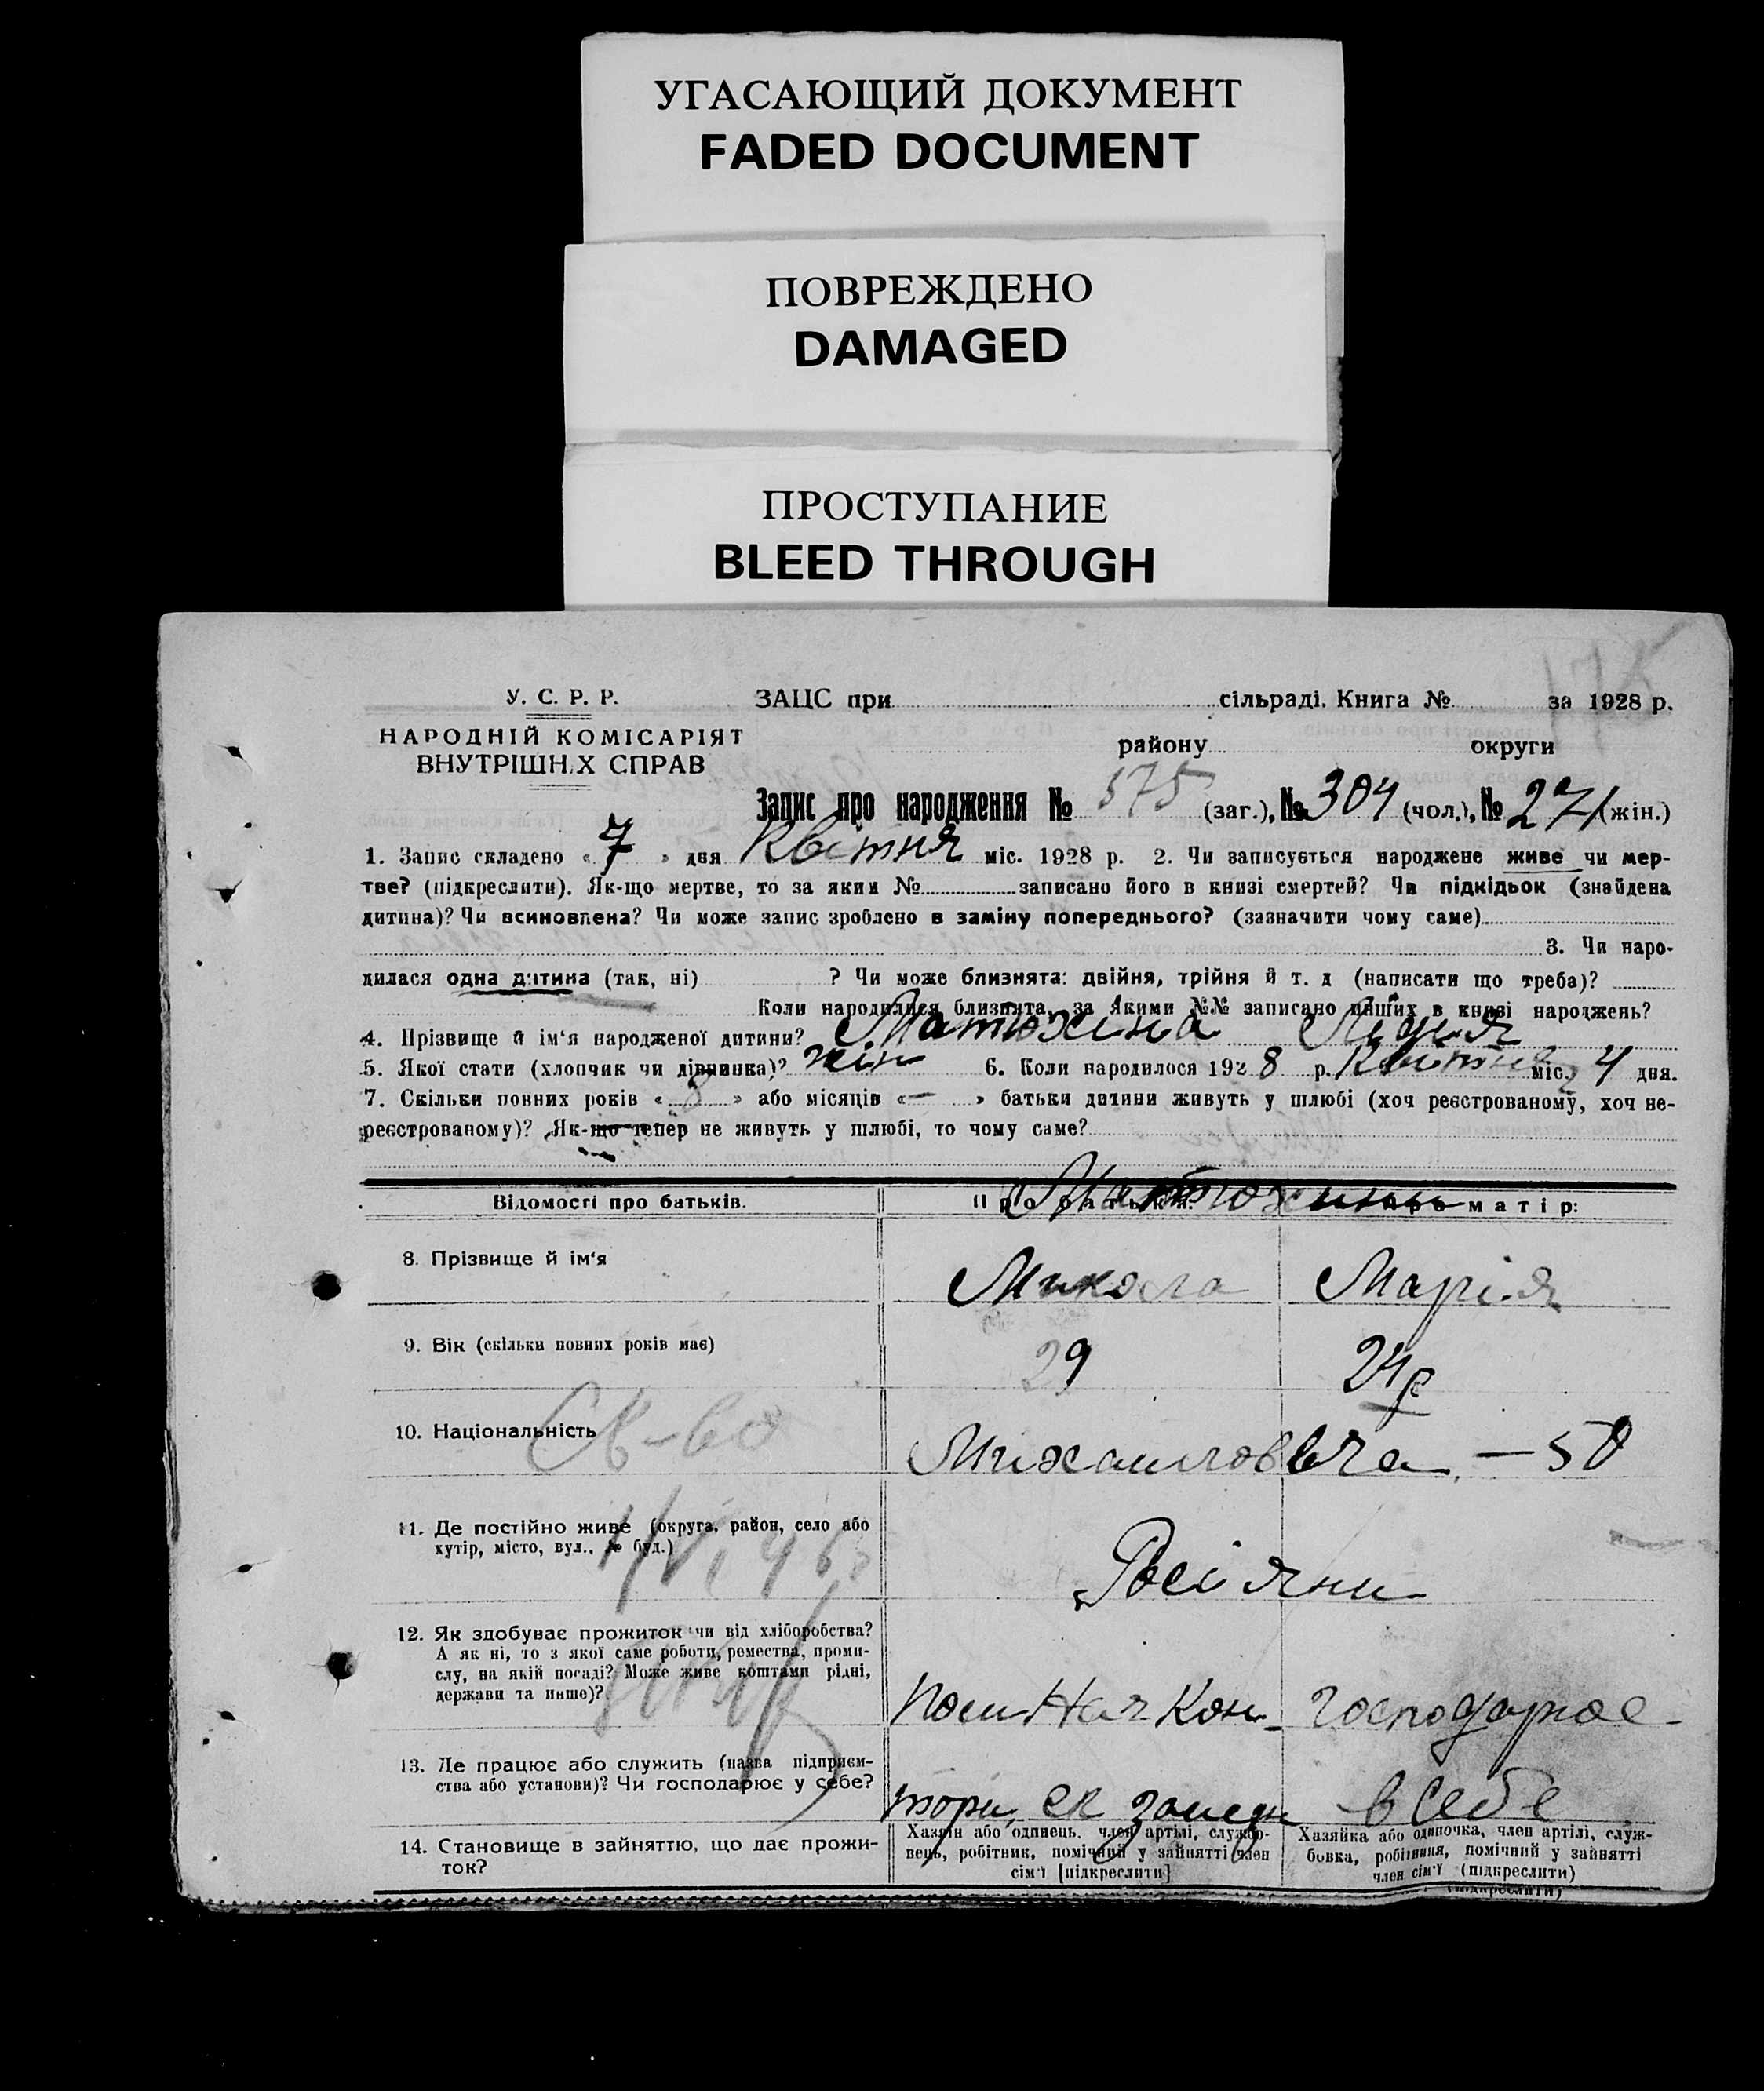 УГАСАЮЩИЙ ДОКУМЕНТ
FADED DOCUMENT
ПОВРЕЖДЕНО
DAMAGED
ПРОСТУПАНИЕ
BLEED THROUGH
У. С. Р. Р.
НАРОДНІЙ КОМІСАРІЯТ
ВНУТРІШНІХ СПРАВ
ЗАЦС при сільраді. Книга № за 1928 р.
району округи
Запис про народження № 575 (заг.), № 304 (чол.), № 271 (жін.)
1. Запис складено «7» дня Квітня міс. 1928 р. 2. Чи записується народжене живе чи мер-
тве? (підкреслити). Як-що мертве, то за яким № записано його в книзі смертей? Чи підкідьок (знайдена
дитина)? Чи всиновлена? Чи може запис зроблено в заміну попереднього? (зазначити чому саме)
3. Чи наро-
дилася одна дитина (так, ні) ? Чи може близнята: двійня, трійня й т. д (написати що треба)?
Коли народилися близнята, за якими №№ записано инших в книзі народжень?
4. Прізвище й ім'я народженої дитини? Матюхіна Лідия
5. Якої стати (хлопчик чи дівчинка)? жін 6. Коли народилося 1928 р. Квітня міс. 4 дня.
7. Скільки повних років «3» або місяців «—» батьки дитини живуть у шлюбі (хоч реєстрованому, хоч не-
реєстрованому)? Як-що тепер не живуть у шлюбі, то чому саме?
Відомості про батьків. Про батька: Про матір:
Матюхины
8. Прізвище й ім'я Микола Марія
9. Вік (скільки повних років має) 29 24р
10. Національність Михаиловича — 50
Св-во
11. Де постійно живе (округа, район, село або
хутір, місто, вул., № буд.)
Росіяни
12. Як здобуває прожиток чи від хліборобства?
А як ні, то з якої саме роботи, ремества, проми-
слу, на якій посаді? Може живе коштами рідні,
держави та инше)?
Пом Нач Кон- господарює
13. Де працює або служить (назва підприєм-
ства або установи)? Чи господарює у себе?
тори, в себе
14. Становище в зайняттю, що дає прожи-
ток?
Хазяїн або одинець, член артілі, службо-
вець, робітник, помічний у зайнятті член
сім'ї [підкреслити]
Хазяйка або одиночка, член артілі, служ-
бовка, робітниця, помічний у зайнятті
член сім'ї (підкреслити)
(підкреслити)